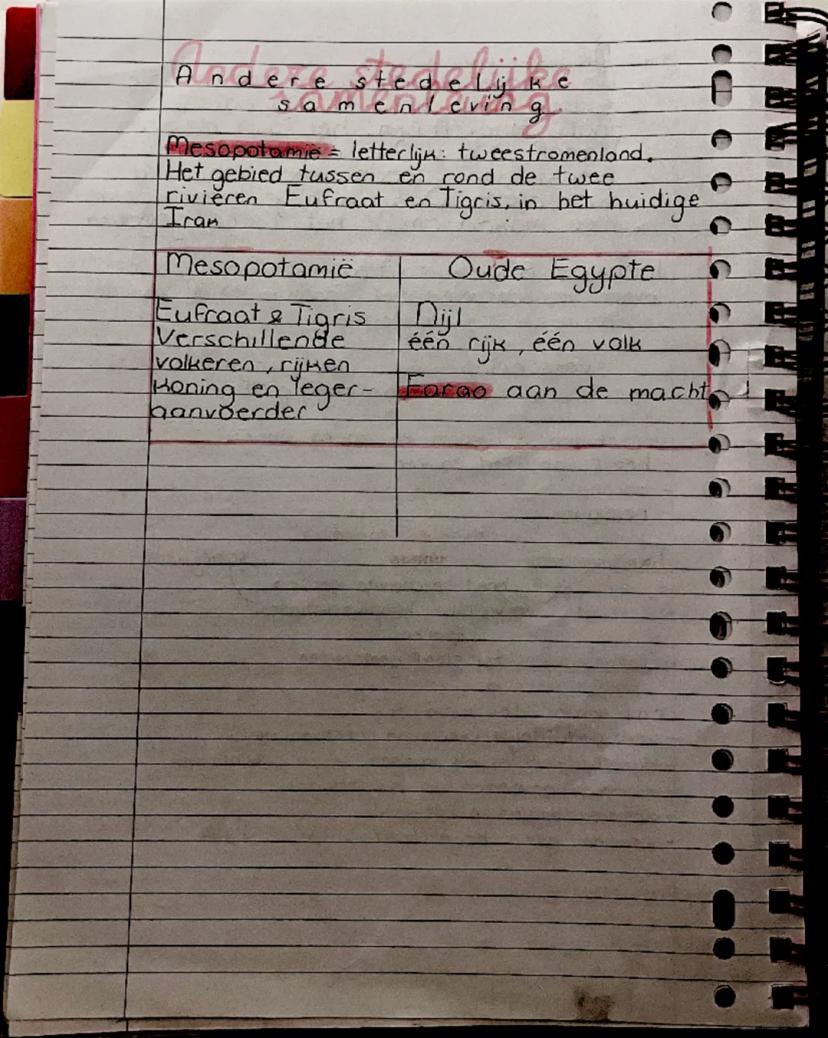 Andere stedelijke
samenleving
Mesopotamie = letterlijk: tweestromenland.
Het gebied tussen en rond de twee
rivieren Eufraat en Tigris, in het huidige
Iran
Mesopotamië
Oude Egypte
Eufraat & Tigris
Nijl
Verschillende
één rijk, één volk
volkeren, rijken
koning en leger-
Farao aan de macht
aanvoerder